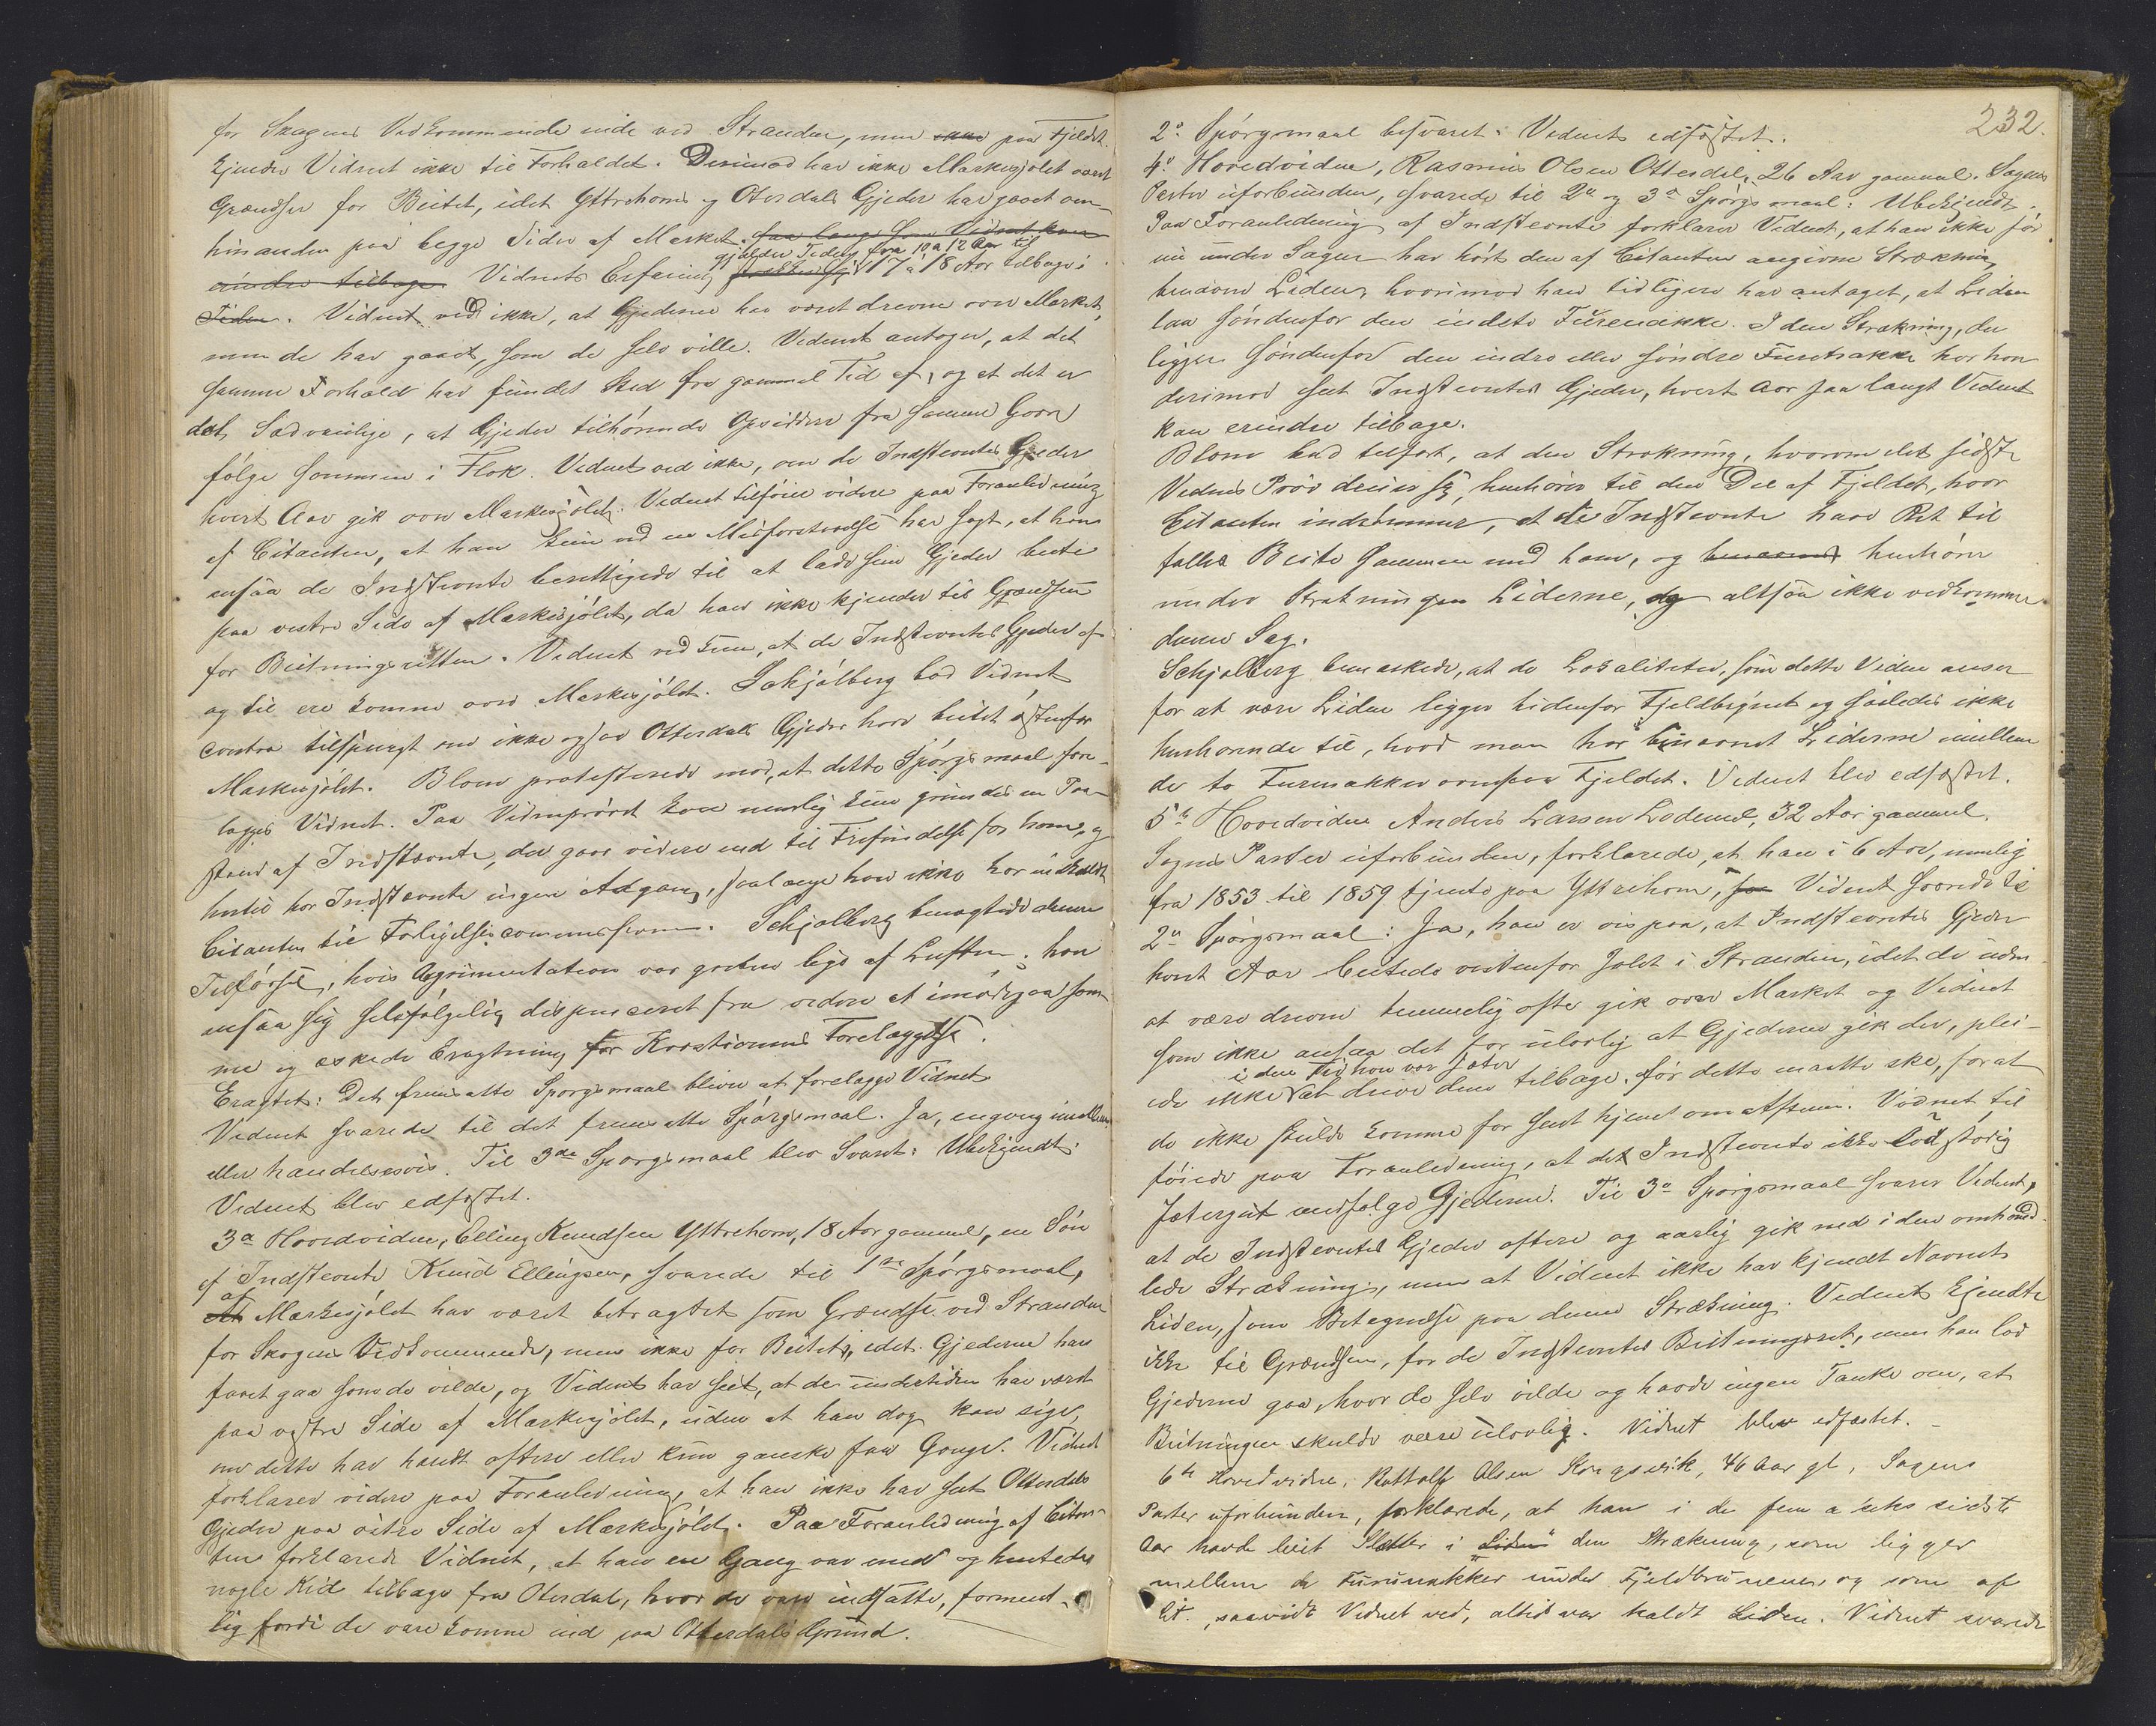 for Skogens Vedkommende inde ved Stranden, men ikke paa Fjeldet
kjender Vidnet ikke til Forholdet. Derimod har ikke Markesjölet været
Grændser for Beitet, idet Yttrehorns og Oterdals Gjeder har gaaet om-
hinanden paa begge Sider af Merket, saa lange som Vidnet kan
gjælder Tiden fra 10 a 12 Aar til
erindre tilbage. Vidnets Erfaring 17 a 18 Aar tilbage i
Tiden. Vidnet ved ikke, at Gjederne har været drevne over Merket,
men de har gaaet, som de selv ville. Vidnet antager, at det
samme Forhold har fundet Sted fra gammel Tid af, og at det er
det Sædvanlige, at Gjeder tilhörende Opsiddere fra samme Gaard
fölge sammen i Flok. Vidnet ved ikke, om de Indstevntes Gjeder
hvert Aar gik over Markesjölet. Vidnet tilföier videre paa Foranledning
af Citanten, at han kun ved en Misforstaaelse har sagt, at han
ansaa de Indstevnte berettigede til at lade sine Gjeder beite
paa vestre Side af Markesjölet, da han ikke kjender til Grændsen
for Beitningsretten. Vidnet ved kun, at de Indstevntes Gjeder af
og til ere komne over Markesjölet. Schjölberg bad Vidnet
contra tilspurgt om ikke ogsaa Otterdals Gjeder have beitet östenfor
Markesjölet. Blom protesterede mod, at dette Spörgsmaal fore-
lægges Vidnet. Paa Vidneprövet kan nemlig kun grundes en Paa-
stand af Indstevnte, der gaar videre end til Frifindelse for ham, og
hertil har Indstevnte ingen Adgang, saalænge han ikke har indkaldt
Citanten til Forligelsescommission. Schjölberg benægtede denne
Tilförsel, hvis Argumentation var greben lige af Luften; han
ansaa sig selvfölgelig dispenseret fra videre at imödegaa sam-
me og æskede Eragtning for Forelæggelse.
Eragtet: Det fremsatte Spörgsmaal bliver at forelægge Vidnet
Vidnet svarede til det fremsatte Spörgsmaal. Ja, engang imellem
eller hændelsesvis. Til 3die Spörgsmaal blev Svaret: Ubekjendt.
Vidnet blev edfæstet.
3die Hovedvidne, Elling Knudsen Yttrehorn, 18 Aar gammel, en Sön
af Indstevnte Knud Ellingsen, svarede til 1ste Spörgsmaal,
at
At Markesjölet har været betragtet som Grændse ved Stranden
for Skogens Vedkommende, men ikke for Beitet, idet Gjederne har
faaet gaa som de vilde, og Vidnet har seet, at de undertiden har været
paa vestre Side af Markesjölet, uden at han dog kan sige,
om dette har hændt oftere eller kun ganske faa Gange. Vidnet
forklarer videre paa Foranledning, at han ikke har seet Otterdals
Gjeder paa östre Side af Markesjölet. Paa Foranledning af Citan-
ten forklarede Vidnet, at han en Gang var med og hentede
nogle Kid tilbage fra Oterdal, hvor de vare indsatte, forment-
lig fordi de vare komne ind paa Otterdals Grund.
232.
2det Spörgsmaal besvaret: Vidnet edfæstet.
4de Hovedvidne, Rasmus Olsen Otterdal, 26 Aar gammel. Sagens
Parter uforbunden, svarede til 2det og 3die Spörgsmaal: Ubekjendt.
Paa Foranledning af Indstevnte forklarer Vidnet, at han ikke för
nu under Sagen har hört den af Citanten angivne Strækning
benævnt Liden, hvorimod han tidligere har antaget, at Liden
laa söndenfor den indste Furenakke. I den Strækning, der
ligger söndenfor den indre eller söndre Furenakke har han
derimod seet Indstevntes Gjeder, hvert Aar saa langt Vidnet
kan erindre tilbage.
Blom bad tilfört, at den Strækning, hvorom det sidste
Vidnes Pröv dreier sig, henhörer til den Del af Fjeldet, hvor
Citanten indrömmer, at de Indstevnte have Ret til
fælles Beite sammen med ham, og henhörer
under Strækningen Liderne, og altsaa ikke vedkommer
denne Sag.
Schjölberg bemærkede, at de Lokaliteter, som dette Vidne anser
for at være Liden ligger hidenfor Fjeldbrynet og saaledes ikke
henhörende til, hvad man har benævnt Liderne imellem
de to Furenakker ovenpaa Fjeldet. Vidnet blev edfæstet.
5te Hovedvidne Anders Larsen Lodemel, 32 Aar gammel,
Sagens Parter uforbunden, forklarede, at han i 6 Aar, nemlig
fra 1853 til 1859 tjente paa Yttrehorn, Vidnet svarede til
2det Spörgsmaal: Ja, han er vis paa, at Indstevntes Gjeder
hvert Aar beitede vestenfor Jolet i Stranden, idet de uden
at være drevne temmelig ofte gik over Merket og Vidnet
som ikke ansaa det for ulovlig at Gjederne gik der, plei-
i den Tid han var Jæter
ede ikke at drive dem tilbage, för dette maatte ske, forat
de ikke skulde komme for sent hjem om Aftenen. Vidnet til-
föiede paa Foranledning, at de Indstevnte ikke lod stadig
Jætergut medfölge Gjederne. Til 3die Spörgsmaal svarer Vidnet,
at de Indstevntes Gjeder oftere og aarlig gik ned i den omhand-
lede Strækning, men at Vidnet ikke har kjendt Navnet
Liden, som Betegnelse paa denne Strækning. Vidnet kjendte
ikke til Grændsen, for de Indstevntes Beitningsret, men han lod
Gjederne gaa, hvor de selv vilde og havde ingen Tanke om, at
Beitningen skulde være ulovlig. Vidnet blev edfæstet. –
6te Hovedvidne, Olsen Kongsvik, 46 Aar gl, Sagens
Parter uforbunden, forklarede, at han i de fem a seks sidste
Aar havde leiet Slåtter i Liden den Strækning, som ligger
mellem de Furunakker under Fjeldbrunenes og som af
Cit., saavidt Vidnet ved, altid var kaldt Liden. Vidnet svarede